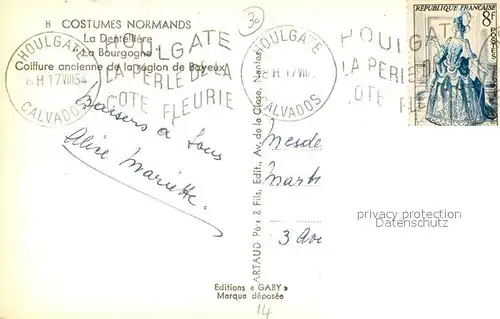 8 COSTUMES NORMANDS
La Dentellière
La Bourgogne
Coiffure ancienne de la région de Bayeux
HOULGATE
8H 17 VIII 54
CALVADOS
HOULGATE
LA PERLE DE LA
COTE FLEURIE
30
HOULGATE
H 17 VIII
CALVADOS
HOULG
LA PERLE D
COTE FLE
RÉPUBLIQUE FRANÇAISE
8F
POSTES
Baisers à tous
Aline Mariette
ARTAUD Père & Fils, Edit., Av. de la Close, Nantes
Mesde
Marti
3 Ave
privacy protection
Datenschutz
Editions « GABY »
Marque déposée
14